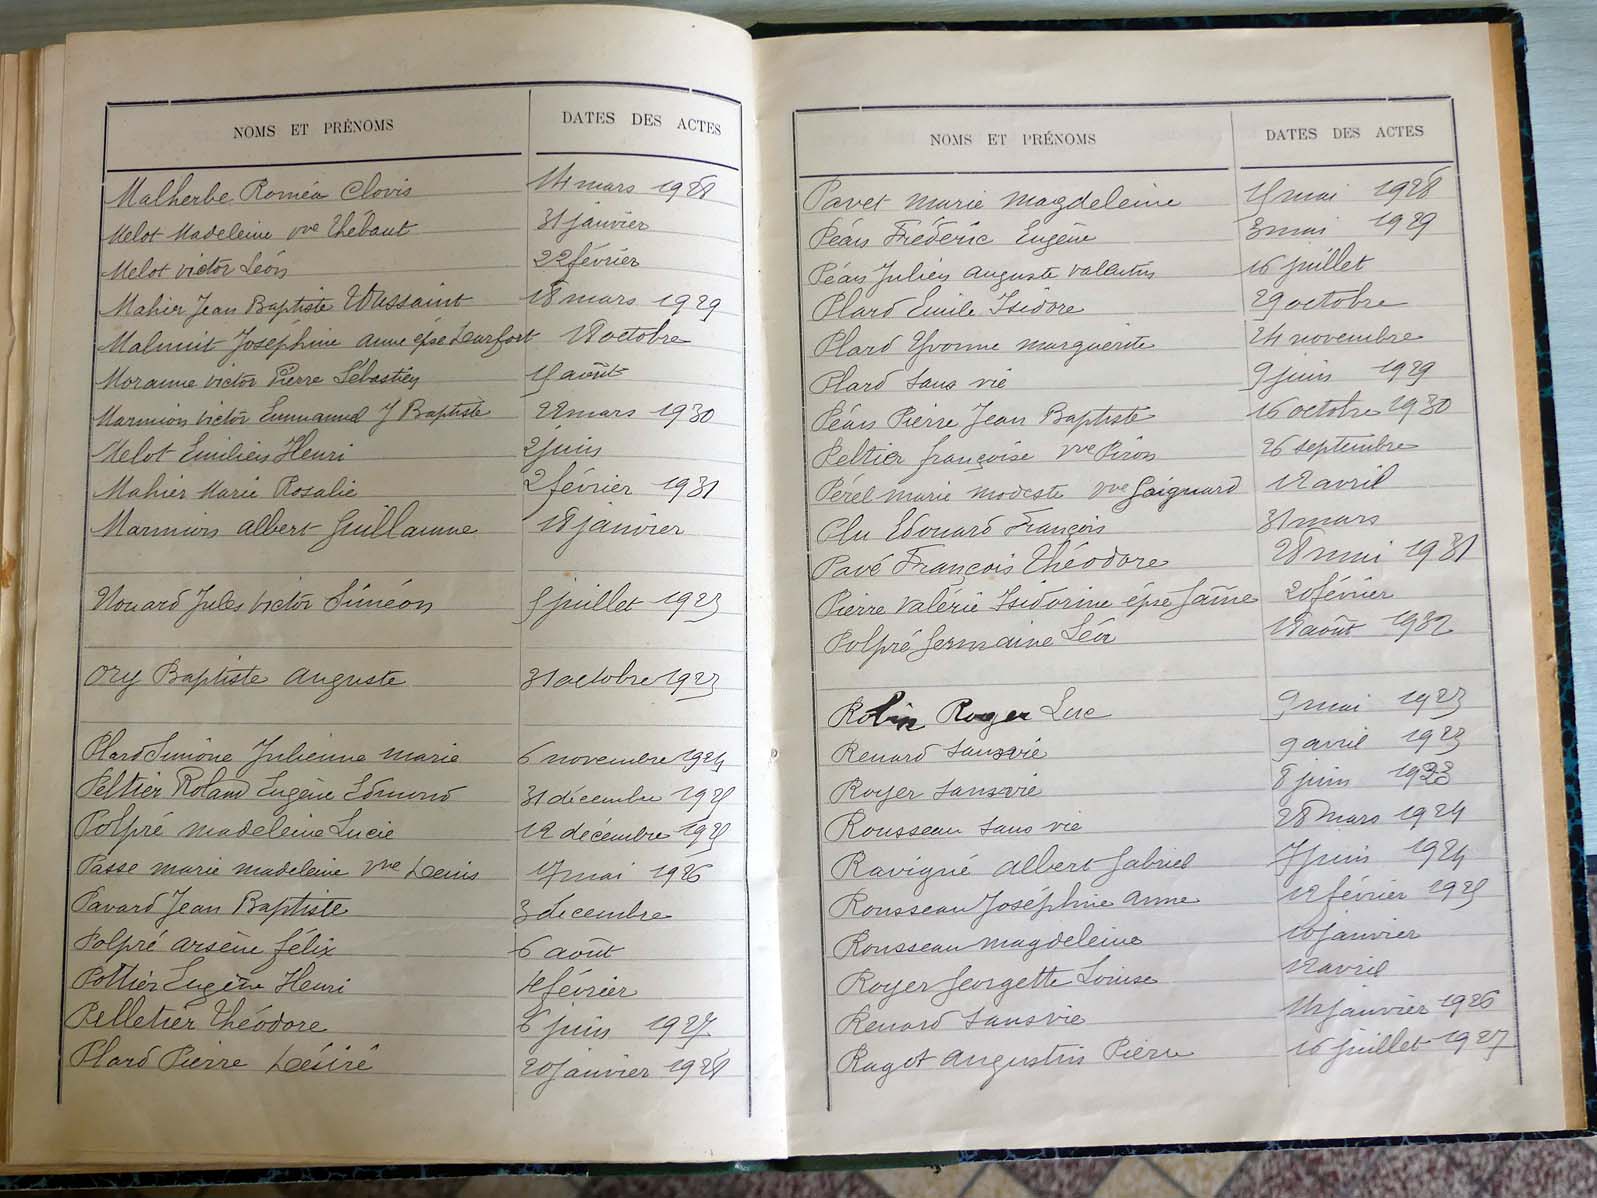 NOMS ET PRÉNOMS DATES DES ACTES
Malherbe Roméa Clovis 14 mars 1928
Melot Madeleine vve Thébaut 31 janvier
Melot victor Léon 22 février
Mahier Jean Baptiste Toussaint 18 mars 1929
Malnuit Joséphine anne épse 18 octobre
Moranne victor Pierre Sébastien août
Marmion victor Emmanuel J Baptiste 22 mars 1930
Melot Emilien Henri 2 juin
Mahier Marie Rosalie 2 février 1931
Marmion albert Guillaume 18 janvier
Nouard Jules victor Siméon 5 juillet 1923
Ory Baptiste auguste 31 octobre 1923
Plard Simone Julienne marie 6 novembre 1924
Peltier Roland Eugène Edmond 31 décembre 1925
Polpré madeleine Lucie 12 décembre 1925
Passe marie madeleine vve Denis 17 mai 1926
Pavard Jean Baptiste 3 décembre
Polpré arsène félix 6 août
Pottier Eugène Henri 4 février
Pelletier Théodore 6 juin 1927
Plard Pierre Désiré 20 janvier 1928
NOMS ET PRÉNOMS DATES DES ACTES
Pavet marie magdeleine 15 mai 1928
Péan Frédéric Eugène 3 mai 1929
Péan Julien auguste valentin 16 juillet
Plard Emile Isidore 29 octobre
Plard Yvonne marguerite 24 novembre
Plard sans vie 9 juin 1929
Péan Pierre Jean Baptiste 16 octobre 1930
Peltier françoise vve Piron 26 septembre
Pérel marie modeste vve Goignard 12 avril
Plu Edouard François 31 mars
Pavé François Théodore 28 mai 1931
Pierre valérie Isidorine épse Jaîne 20 février
Polpré Germaine Léa 18 août 1932
Robin Roger Luc 9 mai 1923
Renard sans vie 9 avril 1923
Royer sans vie 8 juin 1923
Rousseau sans vie 28 mars 1924
Ravigné albert Gabriel 7 juin 1924
Rousseau Joséphine anne 12 février 1925
Rousseau magdeleine 10 janvier
Royer Georgette Louise 12 avril
Renard sans vie 14 janvier 1926
Ragot augustin Pierre 16 juillet 1927